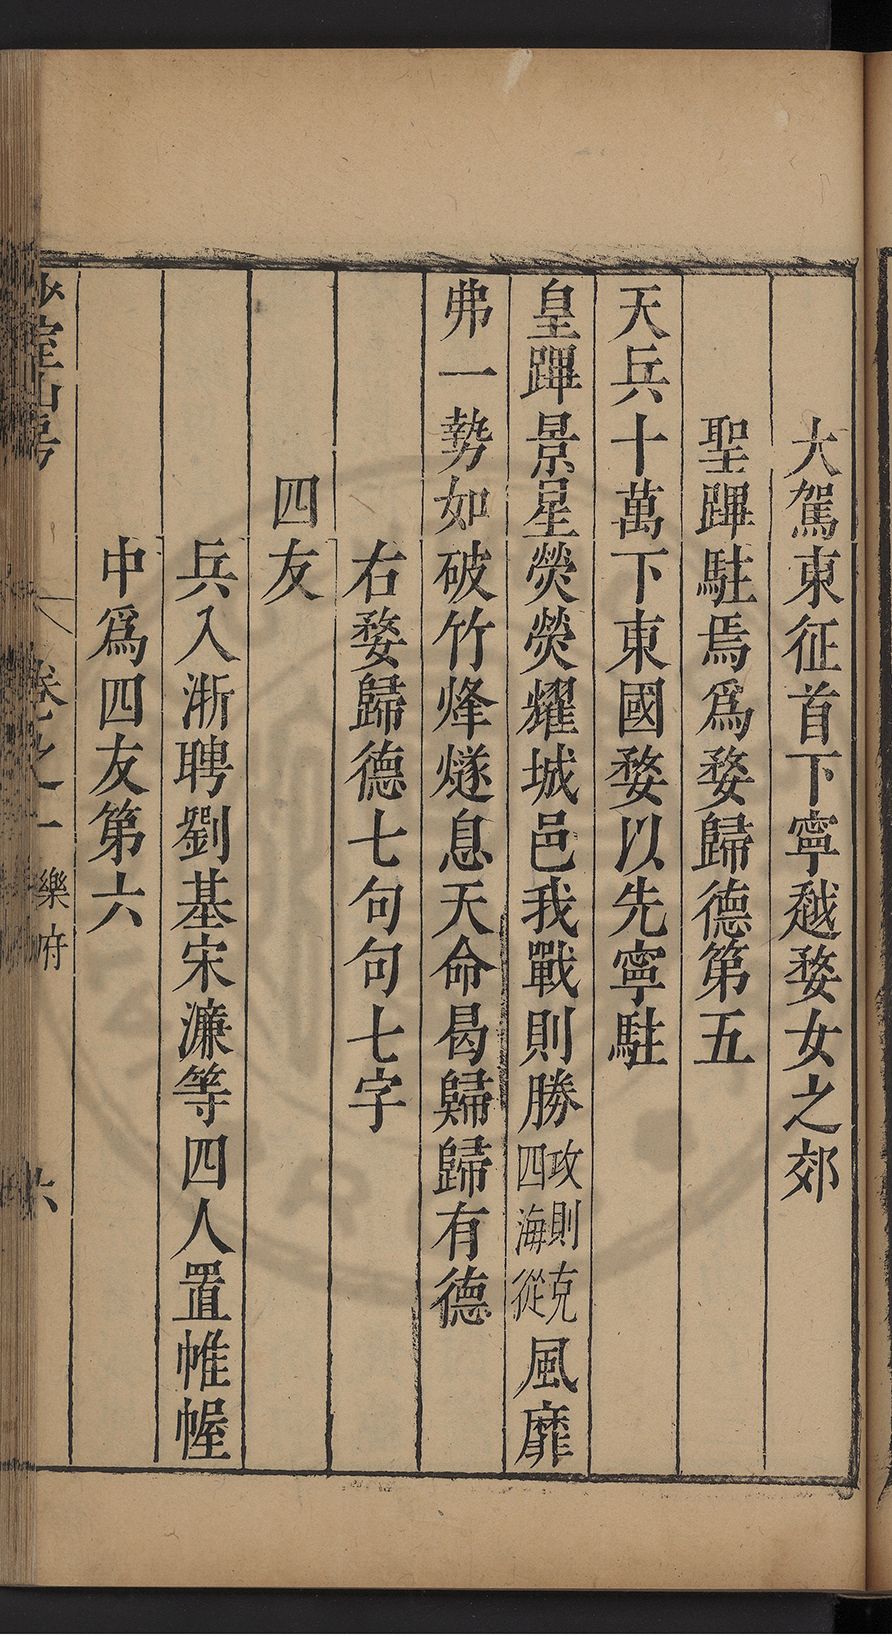 大駕東征首下寧越婺女之郊
聖蹕駐焉爲婺歸德第五
天兵十萬下東國婺以先寧駐
皇蹕景星熒熒耀城邑我戰則勝攻則克四海從風靡
弗一勢如破竹烽燧息天命曷歸歸有德
右婺歸德七句句七字
四友
兵入浙聘劉基宋濂等四人置帷幄
中爲四友第六
少室山房 卷之一 樂府 六